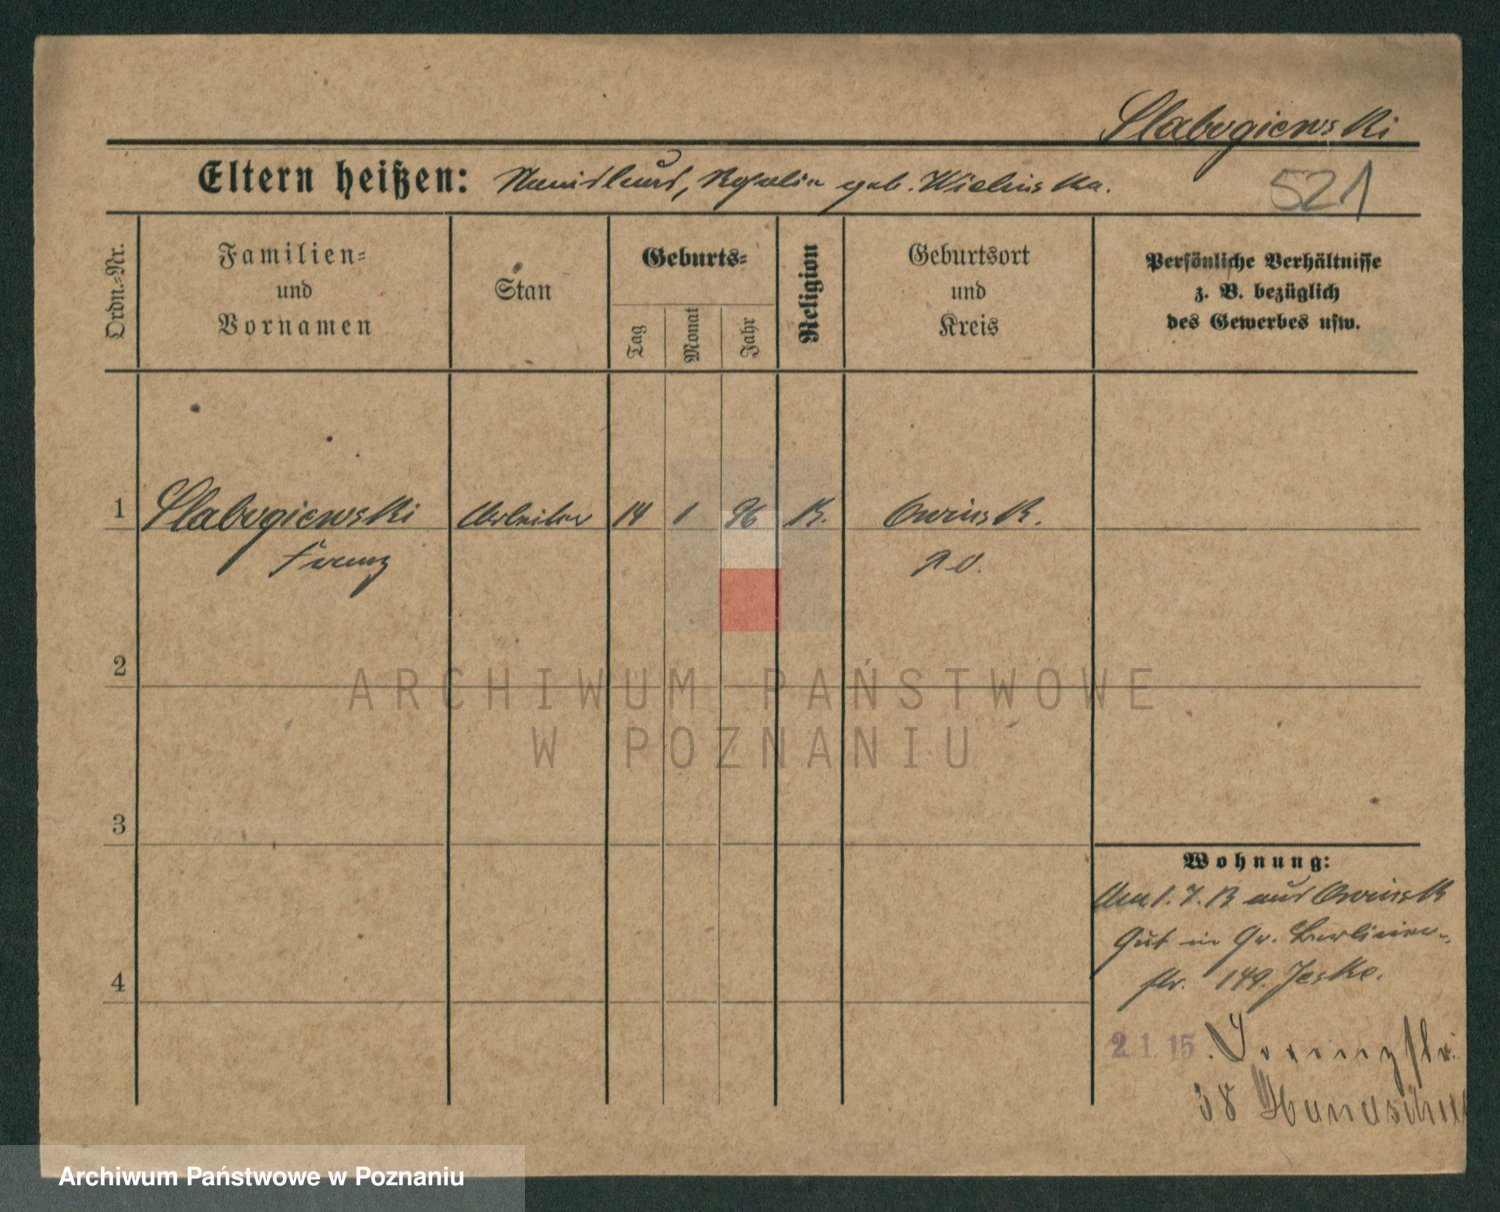 Slabogiewski
Eltern heißen: Stanislaus, Rosalia geb. Wielinska.
521
Ordn.-Nr.
Familien-
und
Vornamen
Stan
Geburts-
Tag
Monat
Jahr
Religion
Geburtsort
und
Kreis
Persönliche Verhältnisse
z. B. bezüglich
des Gewerbes usw.
1 Slabogiewski Arbeiter 14 1 96 K. Owinsk.
Franz P. O.
2
3
4
Wohnung:
Am 1. 7. 13 aus Owinsk
Gut in Gr. Berliner-
str. 149. Jeske.
2 1. 15. Lorenzstr.
38
ARCHIWUM PAŃSTWOWE
W POZNANIU
Archiwum Państwowe w Poznaniu